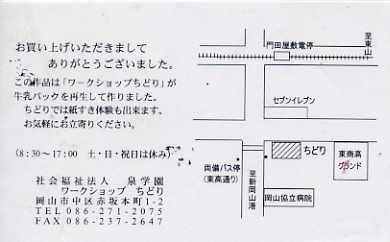 お買い上げいただきまして
ありがとうございました。
この作品は「ワークショップちどり」が
牛乳パックを再生して作りました。
ちどりでは紙すき体験も出来ます。
お気軽にお立寄りください。
(8:30～17:00 土・日・祝日は休み)
社会福祉法人 泉学園
ワークショップ ちどり
岡山市中区赤坂本町1-2
TEL 086-271-2075
FAX 086-237-2647
門田屋敷電停
至東山
セブンイレブン
両備バス停
(東高通り)
至新岡山港
ちどり
岡山協立病院
東商高
グランド